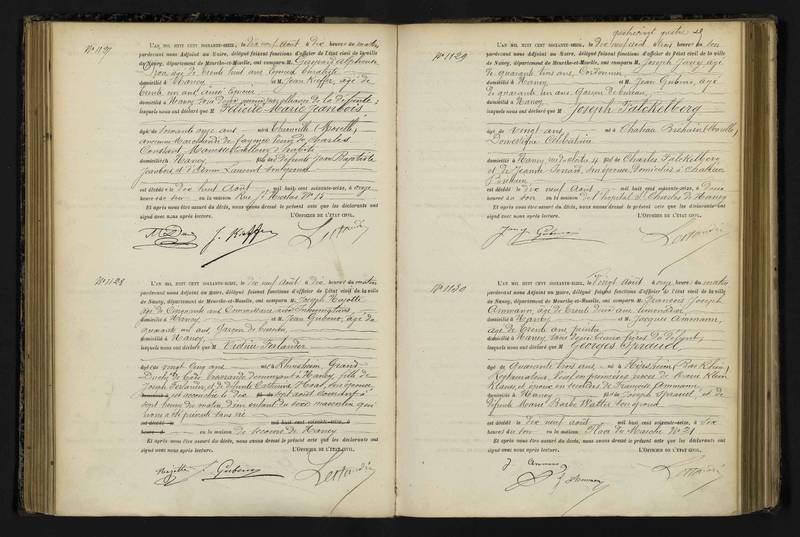 N° 1127
L'AN MIL HUIT CENT SOIXANTE-SEIZE, le dix neuf Août à dix heures du matin
pardevant nous Adjoint au Maire, délégué faisant fonctions d'officier de l'état civil de la ville
de Nancy, département de Meurthe-et-Moselle, ont comparu M. alphonse
âgé de trente huit ans
domicilié à Nancy et M. Jean Kieffer, âgé de
trente un ans, aussi
domicilié à Nancy tous deux de la défunte,
lesquels nous ont déclaré que Félicité Marie Jeanbois
âgée de soixante onze ans née à Thionville (Moselle),
ancienne Marchande de fayence Veuve de Charles
Constant
domiciliée à Nancy fille de défunts Jean Baptiste
Jeanbois et d'Anne Laurent
est décédée le dix huit Août mil huit cent soixante-seize, à onze
heures du soir en la maison Rue St Nicolas N° 15
Et après nous être assuré du décès, nous avons dressé le présent acte que les déclarants ont
signé avec nous après lecture. L'OFFICIER DE L'ÉTAT CIVIL,
J. Kieffer
N° 1128
L'AN MIL HUIT CENT SOIXANTE-SEIZE, le dix neuf Août à dix heures du matin
pardevant nous Adjoint au Maire, délégué faisant fonctions d'officier de l'état civil de la ville
de Nancy, département de Meurthe-et-Moselle, ont comparu M. Joseph
âgé de Cinquante ans Commissaire aux Inhumations
domicilié à Nancy et M. Jean Gubeno, âgé de
quarante un ans, Garçon de bureau,
domicilié à Nancy
lesquels nous ont déclaré que Vidrine Ferlander
âgée de vingt cinq ans née à Grand
Duché de Bade demeurant à Nancy, fille de
Joseph Ferlander, et de défunte Catherine son épouse
est accouchée le dix sept août courant à
sept heures du matin d'un enfant du sexe masculin qui
nous a été présenté sans vie
en la maison de secours de Nancy
Et après nous être assuré du décès, nous avons dressé le présent acte que les déclarants ont
signé avec nous après lecture. L'OFFICIER DE L'ÉTAT CIVIL,
J. Gubeno
N° 1129
L'AN MIL HUIT CENT SOIXANTE-SEIZE, le dix neuf août, à trois heures du soir
pardevant nous Adjoint au Maire, délégué faisant fonctions d'officier de l'état civil de la ville
de Nancy, département de Meurthe-et-Moselle, ont comparu M. Joseph Jany, âgé
de quarante trois ans, Cordonnier,
domicilié à Nancy et M. Jean Gubeno, âgé
de quarante un ans, Garçon de bureau,
domicilié à Nancy
lesquels nous ont déclaré que Joseph Fatckelberg
âgé de vingt ans né à Chateau Bréhain (Moselle),
Domestique Célibataire
domicilié à Nancy, rue du cloître, 4 fils de Charles Fatckelberg
et de Jeanne domiciliés à Château
Bréhain
est décédé le dix neuf Août mil huit cent soixante-seize, à deux
heures du soir en la maison de l'hôpital St Charles de Nancy
Et après nous être assuré du décès, nous avons dressé le présent acte que les déclarants ont
signé avec nous après lecture. L'OFFICIER DE L'ÉTAT CIVIL,
Gubeno
N° 1130
L'AN MIL HUIT CENT SOIXANTE-SEIZE, le Vingt Août à onze heures du matin
pardevant nous Adjoint au Maire, délégué faisant fonctions d'officier de l'état civil de la ville
de Nancy, département de Meurthe-et-Moselle, ont comparu M. François Joseph
Ammann, âgé de trente deux ans, limonadier
domicilié à Nancy et M. Jacques Ammann,
âgé de trente ans, peintre
domicilié à Nancy, tous deux beaux frères du défunt,
lesquels nous ont déclaré que Georges Spraüel
âgé de Quarante trois ans né à (Bas Rhin),
Veuf en premières noces de Marie
Klauss, et époux en secondes de Françoise Ammann
domicilié à Nancy fils de Joseph Spraüel, et de
défunte Marie Barbe Walter son épouse
est décédé le dix neuf Août mil huit cent soixante-seize, à six
heures du soir en la maison Place du Marché N° 21
Et après nous être assuré du décès, nous avons dressé le présent acte que les déclarants ont
signé avec nous après lecture. L'OFFICIER DE L'ÉTAT CIVIL,
J Ammann